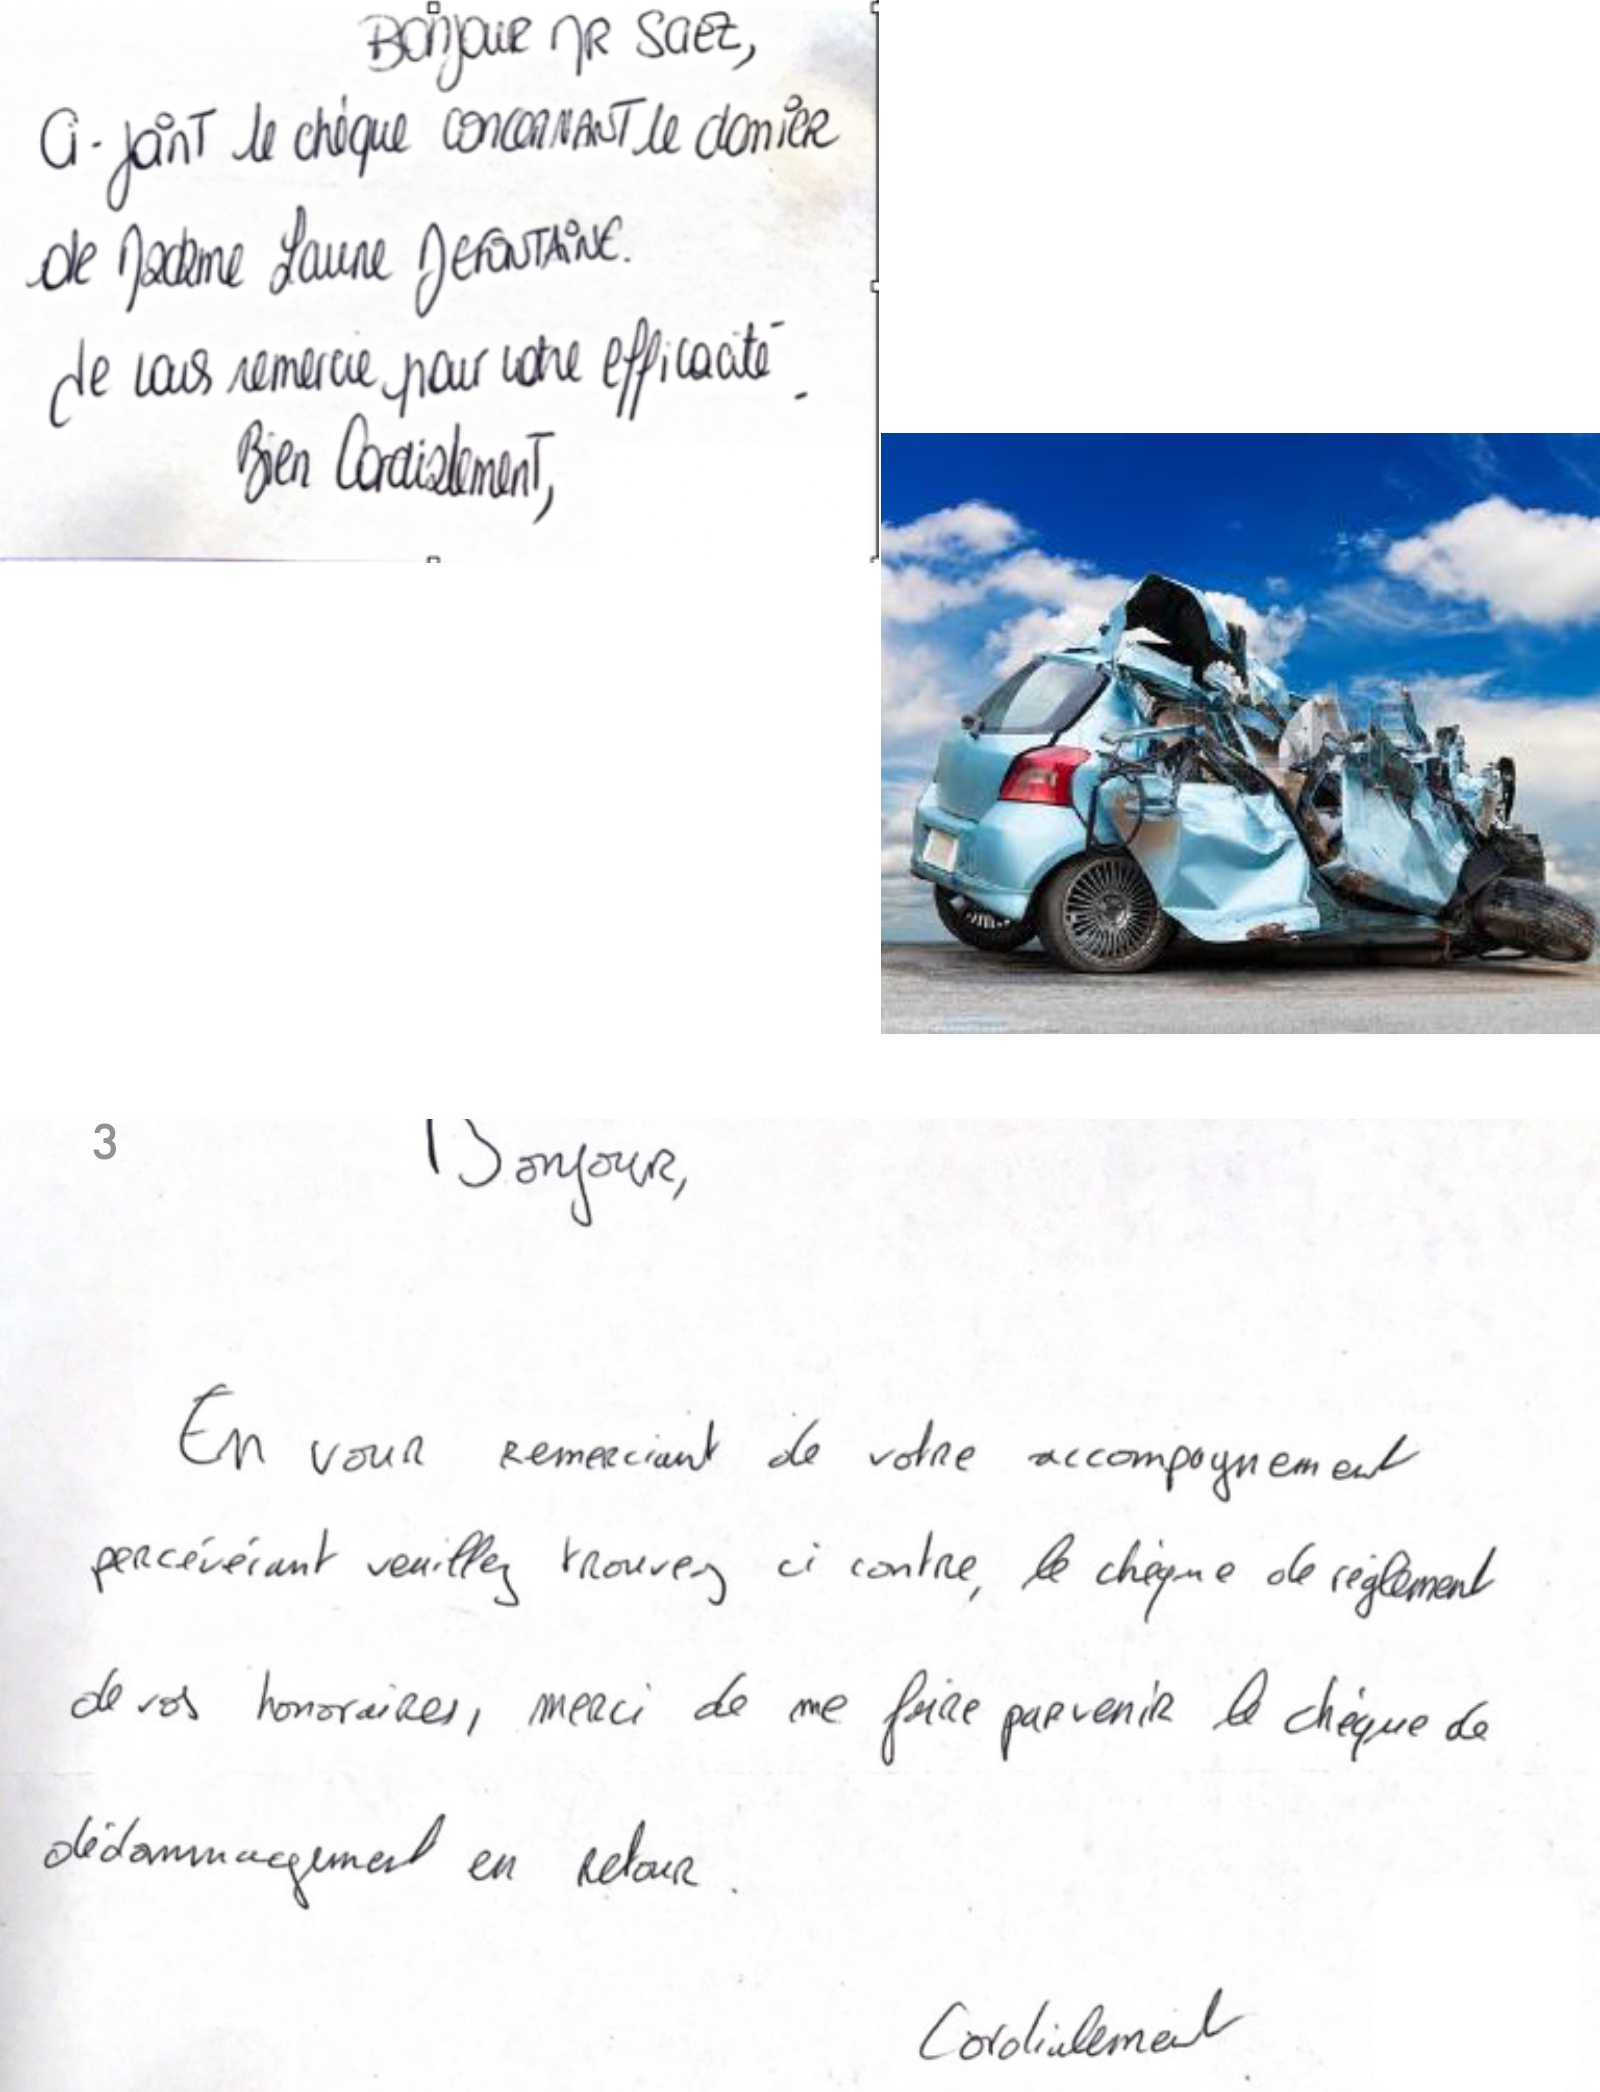 Bonjour MR SAEZ,
Ci-joint le chèque concernant le dossier
de Madame Laure DEFONTAINE.
Je vous remercie pour votre efficacité.
Bien Cordialement,
3
Bonjour,
En vour remerciant de votre accompagnement
percévérant veuillez trouvez ci contre, le chèque de réglement
de vos honoraires, merci de me faire parvenir le chèque de
dédommagement en retour.
Cordialement